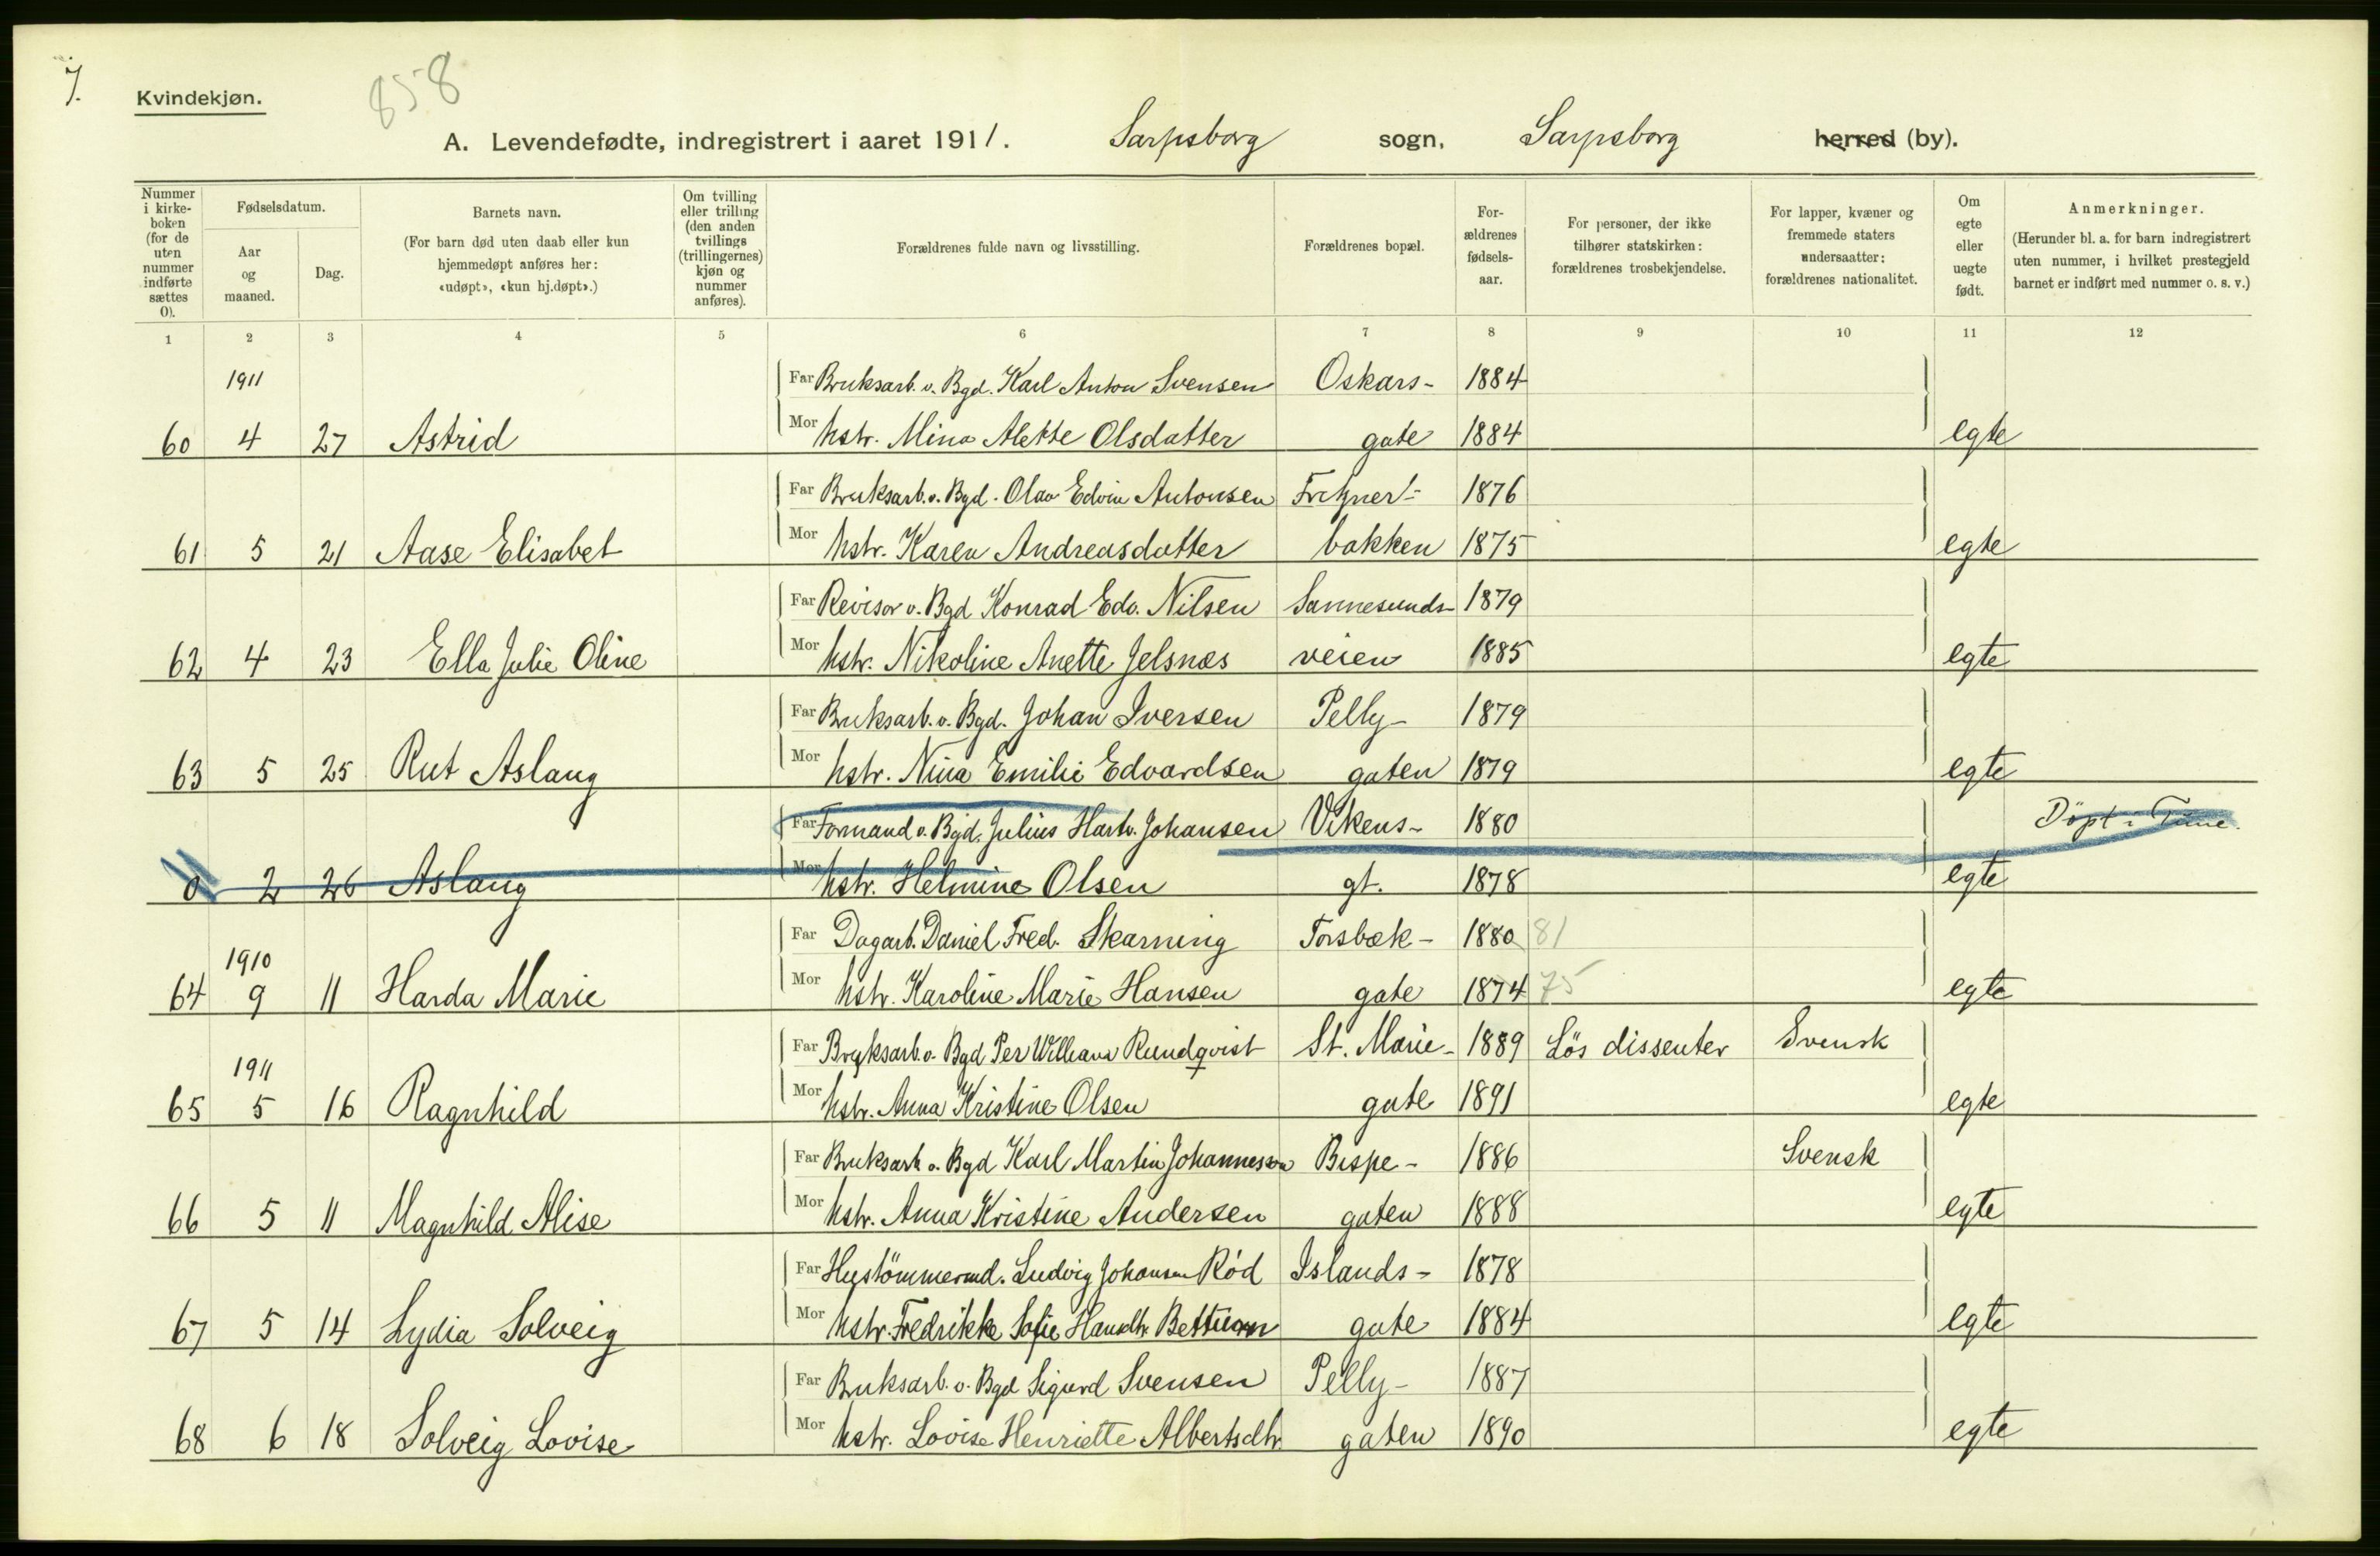 7.
Kvindekjøn.
858
A. Levendefødte, indregistrert i aaret 1911. Sarpsborg sogn, Sarpsborg herred (by).
Nummer i kirkeboken (for de uten nummer indførte sættes 0).
Fødselsdatum.
Aar og maaned.
Dag.
Barnets navn.
(For barn død uten daab eller kun hjemmedøpt anføres her: «udøpt», «kun hj.døpt».)
Om tvilling eller trilling (den anden tvillings (trillingernes) kjøn og nummer anføres).
Forældrenes fulde navn og livsstilling.
Forældrenes bopæl.
Forældrenes fødselsaar.
For personer, der ikke tilhører statskirken: forældrenes trosbekjendelse.
For lapper, kvæner og fremmede staters undersaatter: forældrenes nationalitet.
Om egte eller uegte født.
Anmerkninger.
(Herunder bl. a. for barn indregistrert uten nummer, i hvilket prestegjeld barnet er indført med nummer o. s. v.)
1 2 3 4 5 6 7 8 9 10 11 12
1911 Far Bruksarb. v. Bgd. Karl Anton Svensen Oskars- 1884
60 4 27 Astrid Mor hstr. Mina Alette Olsdatter gate 1884 egte
Far Bruksarb. v. Bgd. Olav Edvin Antonsen Fritzner- 1876
61 5 21 Aase Elisabet Mor hstr. Karen Andreasdatter bakken 1875 egte
Far Revisor v. Bgd Konrad Edv. Nilsen Sannesunds- 1879
62 4 23 Ella Julie Oline Mor hstr. Nikoline Anette Jelsnæs veien 1885 egte
Far Bruksarb. v. Bgd. Johan Iversen Pelly- 1879
63 5 25 Rut Aslaug Mor hstr. Nina Emilie Edvardsen gaten 1879 egte
Far Formand v. Bgd. Julius Hartv. Johansen Vikens- 1880 Döpt i Tune.
0 2 26 Aslaug Mor hstr. Helmine Olsen gt. 1878 egte
Far Dagarb. Daniel Fred. Skarning Torsbæk- 1880 81
1910
64 9 11 Harda Marie Mor hstr. Karoline Marie Hansen gate 1874 75 egte
Far Bruksarb. v. Bgd Per William Rundqvist St. Marie- 1889 Lös dissenter Svensk
1911
65 5 16 Ragnhild Mor hstr. Anna Kristine Olsen gate 1891 egte
Far Bruksarb v. Bgd Karl Martin Johannessen Bispe- 1886 Svensk
66 5 11 Magnhild Alise Mor hstr. Anna Kristine Andersen gaten 1888 egte
Far Hustömmermd. Ludvig Johansen Röd Islands- 1878
67 5 14 Lydia Solveig Mor hstr. Fredrikke Sofie Hansdtr. gate 1884 egte
Far Bruksarb. v. Bgd Sigurd Svensen Pelly- 1887
68 6 18 Solveig Lovise Mor hstr. Lovise Henriette Albertsdtr gaten 1890 egte